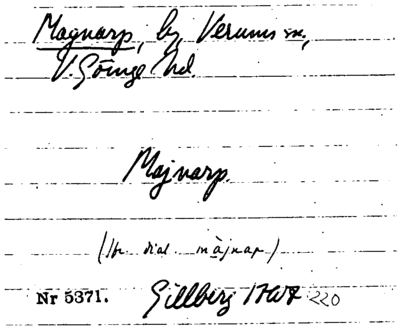 Magnarp, by Verums sn,
V. Göinge hd.
Majnarp.
(lr dial màjnar)
Nr 5371. Gillberg 1767 220